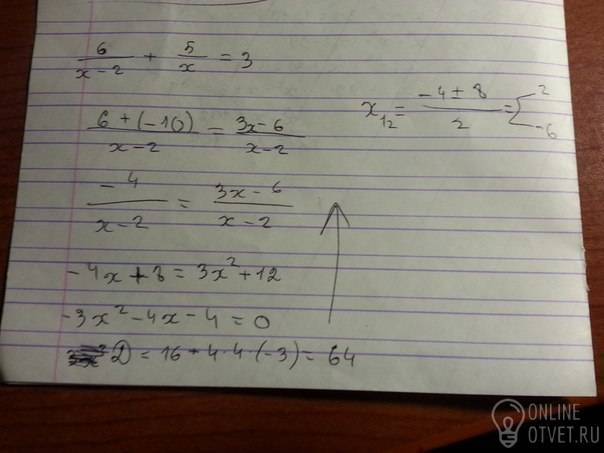 6/(x-2) + 5/x = 3
(6+(-10))/(x-2) = (3x-6)/(x-2)
-4/(x-2) = (3x-6)/(x-2)
-4x+8 = 3x²+12
-3x²-4x-4=0
D = 16-4·4(-3) = 64
x₁₂ = (-4±8)/2 = { 2
-6
ONLINE
OTVET.RU